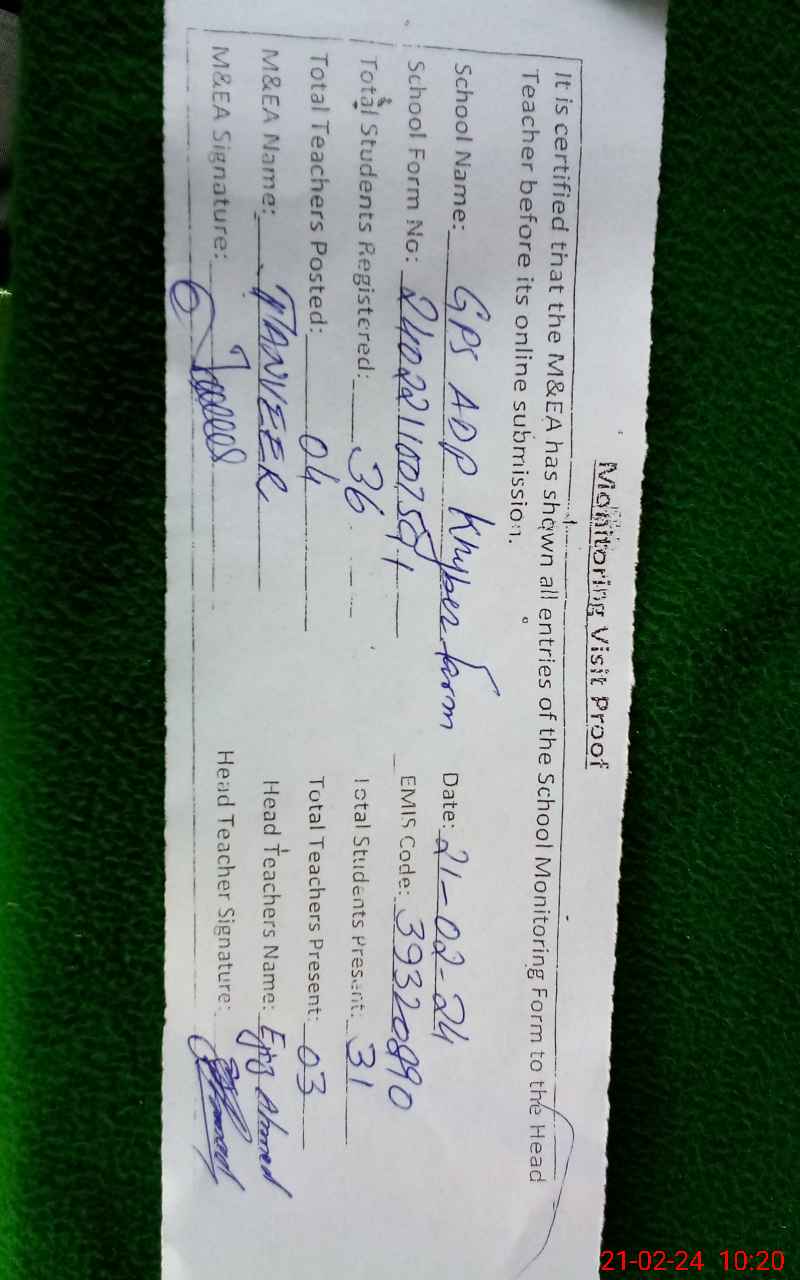 Monitoring Visit Proof
It is certified that the M&EA has shown all entries of the School Monitoring Form to the Head
Teacher before its online submission.
School Name: GPS ADP Khyber farm Date: 21-02-24
School Form No: EMIS Code: 39320890
Total Students Registered: 36 Total Students Present: 31
Total Teachers Posted: 04 Total Teachers Present: 03
M&EA Name: TANVEER Head Teachers Name: Ejaz Ahmed
M&EA Signature: Head Teacher Signature:
21-02-24 10:20